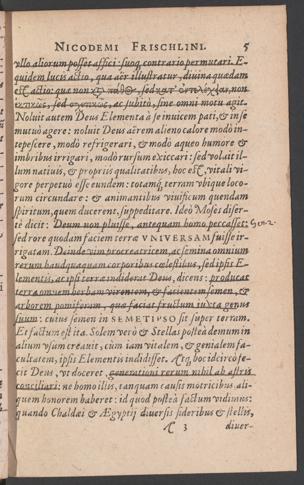 NICODEMI FRISCHLINI. 5
vllo aliorum posset affici: suoq; contrario permutari. E-
quidem lucis actio, qua aër illustratur, diuina quædam
est actio: quæ non κτ̃ πάθ@, sed κατ' ἐντελέχειαν, non
sed ac subitò, sine omni motu agit.
Noluit autem Deus Elementa à se inuicem pati, & in se
mutuò agere: noluit Deus aërem alieno calore modò in-
tepescere, modò refrigerari, & modò aqueo humore &
imbribus irrigari, modò rursum exiccari: sed volait il-
lum natiuis, & propriis qualitatibus, hoc est, vitali vi-
gore perpetuò esse eundem: totamq́; terram vbique loco-
rum circundare: & animantibus viuificum quendam
spiritum, quem ducerent, suppeditare. Ideò Moses diser-
tè dicit: Deum non pluisse, antequam homo peccasset: Gen. 2.
sed rore quodam faciem terræ VNIVERSAM fuisse ir-
rigatam. Deinde vim procreatricem, ac semina omnium
rerum haudquaquam corporibus cœlestibus, sed ipsis E-
lementis, ac ipsi terræ indiderat Deus, dicens: producat
terra omnem herbam virentem, & facientem semen, &
arborem pomiferam, quæ faciat fructum iuxta genus
suum: cuius semen in SEMETIPSO sit super terram.
Et factum est ita. Solem verò & Stellas posteà demum in
alium vsum creauit, cùm iam vitalem, & genialem fa-
cultatem, ipsis Elementis indidisset. Atq; hoc idcircò fe-
cit Deus, vt doceret, generationi rerum nihil ab astris
conciliari: ne homo illis, tanquam causis motricibus, ali-
quem honorem haberet: id quod posteà factum vidimus:
quando Chaldæi & Ægyptij diuersis sideribus & stellis,
A 3 diuer-